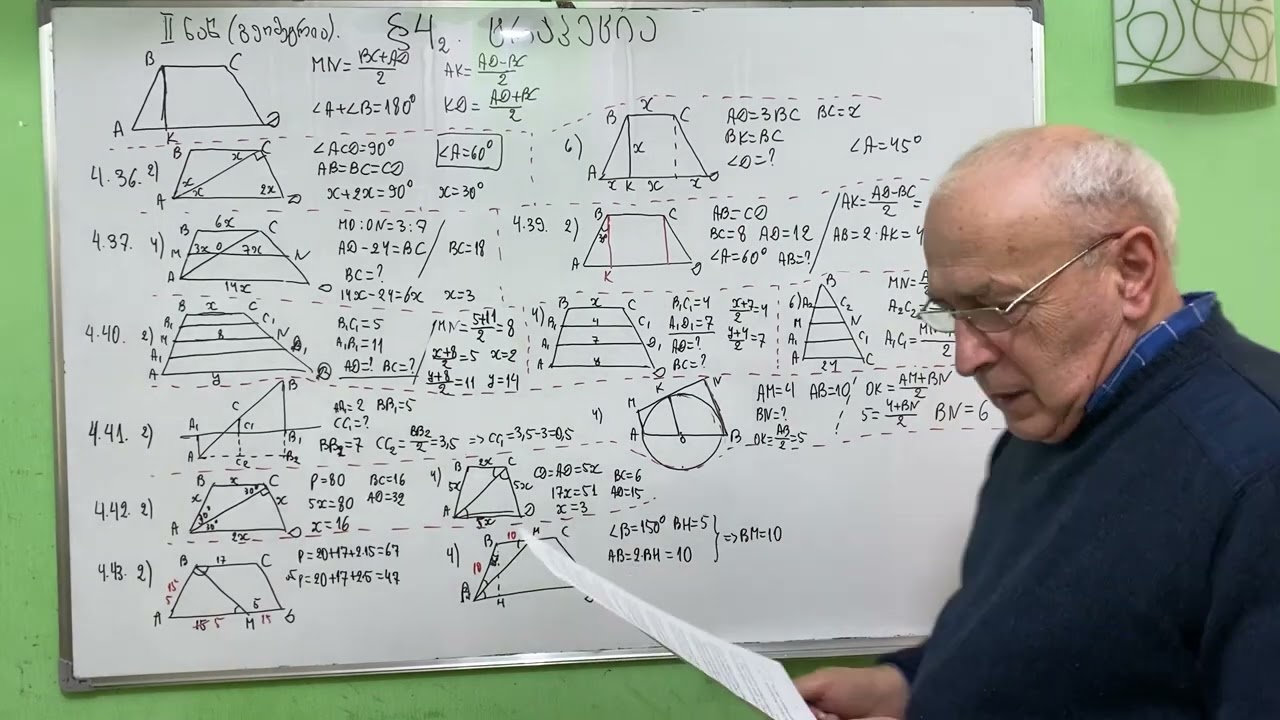 II ნაწ (გეომეტრია). §4₂. ტრაპეცია
B C
A K D
MN = (BC+AD)/2
AK = (AD-BC)/2
∠A+∠B=180°
KD = (AD+BC)/2
4.36. 2)
B C
x
x x 2x
A D
∠ACD=90°
AB=BC=CD
x+2x=90° x=30°
∠A=60°
6)
x
B C
x
A x K x x D
AD=3BC BC=x
BK=BC
∠D=?
∠A=45°
4.37. 4)
B 6x C
M 3x O 7x N
A 14x D
MO:ON=3:7
AD-24=BC
BC=?
14x-24=6x x=3
BC=18
4.39. 2)
B C
30°
A K D
AB=CD
BC=8 AD=12
∠A=60° AB=?
AK = (AD-BC)/2 =
AB=2·AK=4
4.40. 2)
B x C
B₁ C₁
M 8 N
A₁ D₁
A y D
B₁C₁=5
A₁D₁=11
AD=? BC=?
MN = (5+11)/2 = 8
(x+8)/2 = 5 x=2
(y+8)/2 = 11 y=14
4)
B x C
B₁ 4 C₁
A₁ 7 D₁
A y D
B₁C₁=4
A₁D₁=7
AD=?
BC=?
(x+7)/2 = 4
(y+4)/2 = 7
6)
B
A₂ C₂
M N
A₁ C₁
A 24 C
MN=
A₂C₂
A₁C₁ =
4.41. 2)
B
C
A₁ C₁ B₁
A C₂ B₂
AA₁=2 BB₁=5
CC₁=?
BB₂=7 CC₂ = BB₂/2 = 3,5 => CC₁=3,5-3=0,5
4)
K N
M
A o B
AM=4 AB=10
BN=?
OK = AB/2 = 5
OK = (AM+BN)/2
5 = (4+BN)/2 BN=6
4.42. 2)
B x C
x 30° x
30° 30°
A 2x D
P=80 BC=16
5x=80 AD=32
x=16
4)
B 2x C
5x 5x
A 5x D
CD=AD=5x BC=6
17x=51 AD=15
x=3
4.43. 2)
B 17 C
15
5
A 15 5 M 15 D
5
P=20+17+2·15=67
P=20+17+2·5=47
4)
B 10 M C
10
A H
∠B=150° BH=5
AB=2·BH=10
=> BM=10